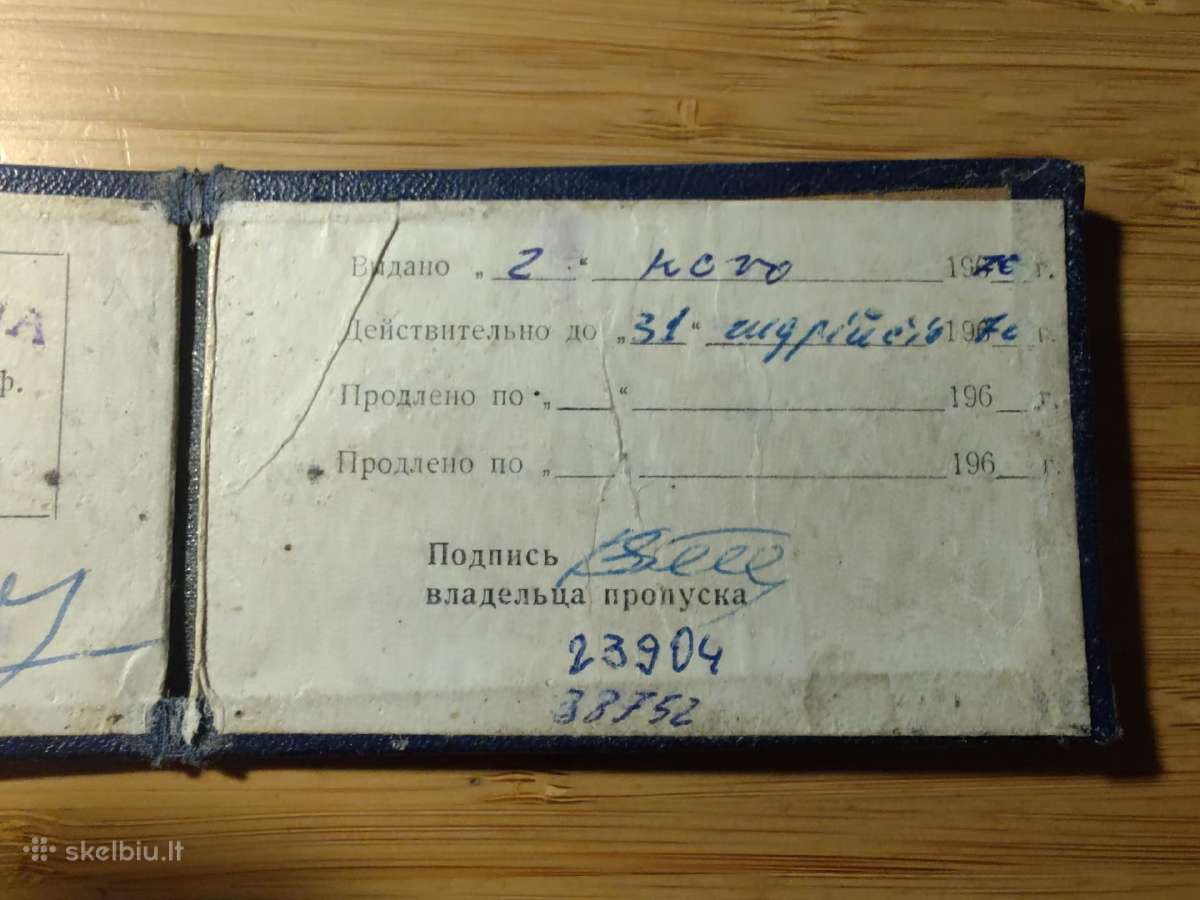 НА
ф.
Выдано „ 2 “ 1970 г.
Действительно до „31“ 1970 г.
Продлено по „___“ 196__ г.
Продлено по „___“ 196__ г.
Подпись
владельца пропуска
23904
38752
skelbiu.lt